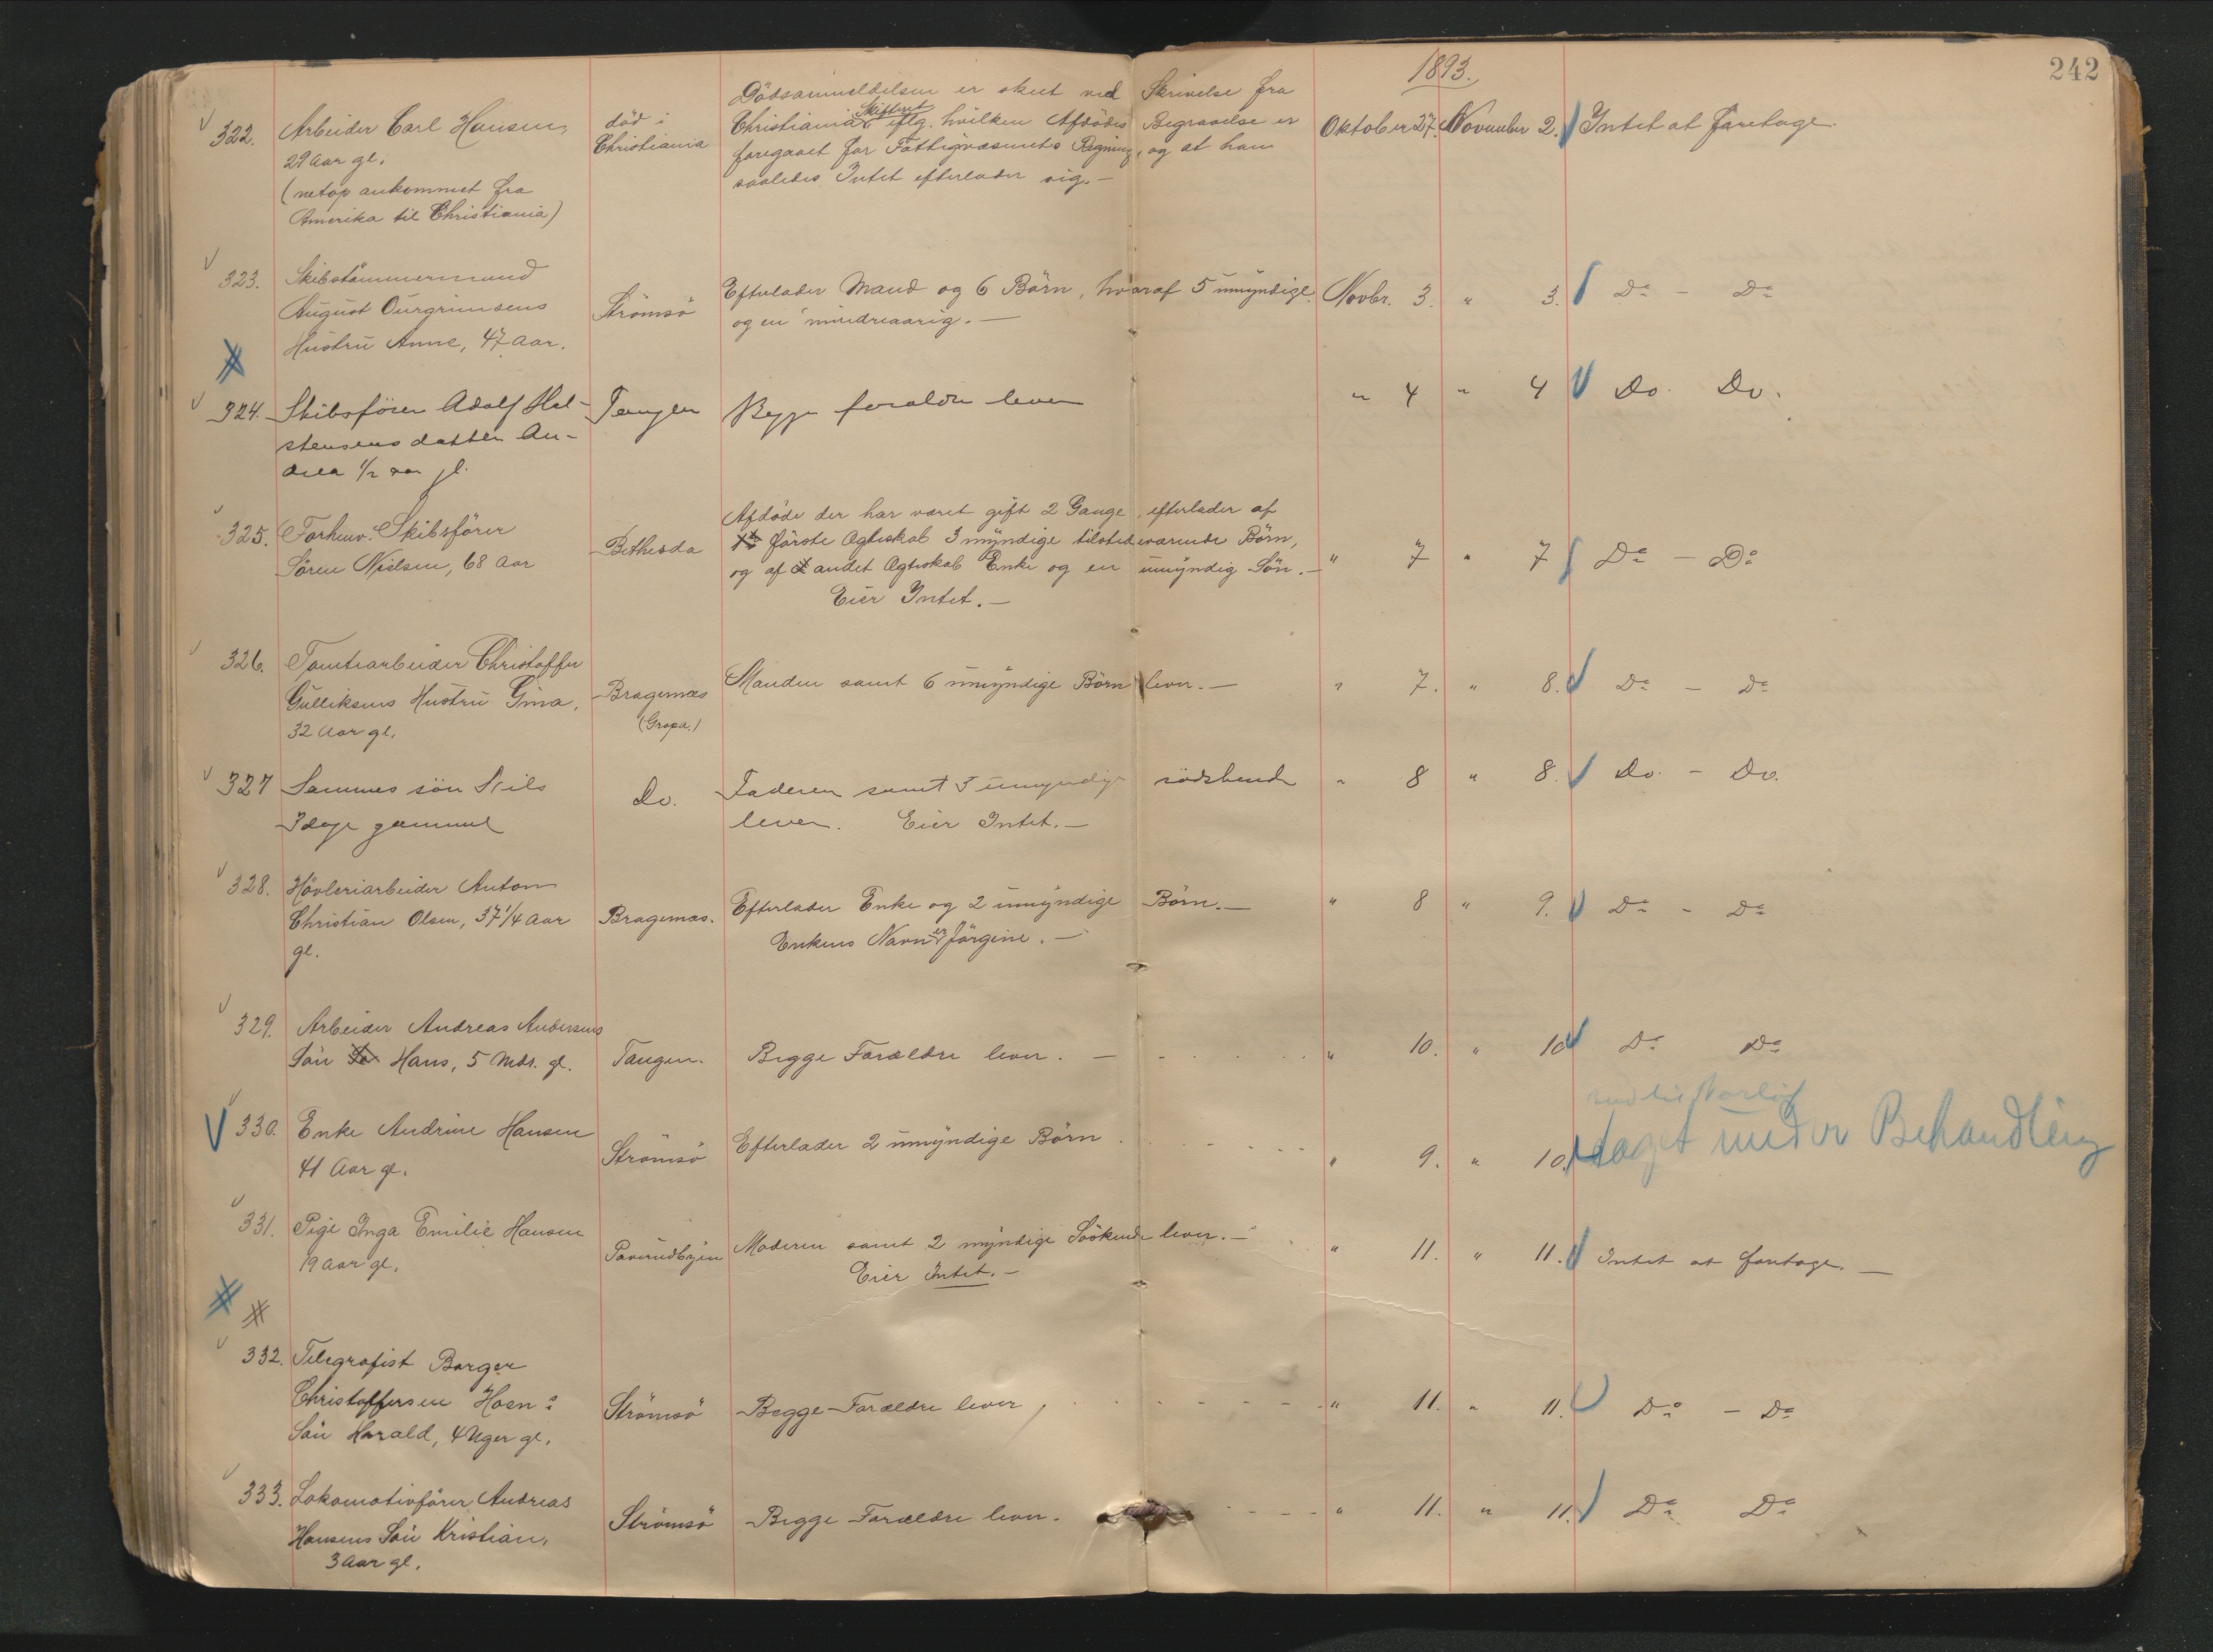 242
1893.
322. Arbeider Carl Hansen,
29 Aar gl.
(netop ankommet fra
Amerika til Christiania)
död i
Christiania
Dödsanmeldelsen er skeet ved Skrivelse fra
Christiania Skifteret eftg. hvilken Afdödes Begravelse er
foregaaet for Fattigvæsenets Regning, og at han
saaledes Intet efterlader sig.—
Oktober 27. November 2. Intet at foretage.
323. Skibstömmermand
August Ourgrimsens
Hustru Anne, 47 Aar.
Strömsö
Efterlader Mand og 6 Börn, hvoraf 5 umyndige
og en mindreaarig.—
Novbr. 3. " 3. Do — Do
324. Skibsförer Adolf Hal-
stensens datter An-
drea 1/2 aar gl.
Tangen
Begge forældre lever
" 4 " 4 Do. Do.
325. Forhenv. Skibsförer
Sören Nielsen, 68 Aar
Bethesda
Afdöde der har været gift 2 Gange, efterlader af
förste Ægteskab 3 myndige tilstedeværende Börn,
og af andet Ægteskab Enke og en umyndig Sön.—
Eier Intet.—
" 7 " 7 Do — Do
326. Tomtearbeider Christoffer
Gulliksens Hustru Gina,
32 Aar gl.
Bragernæs
(Gropa.)
Manden samt 6 umyndige Börn lever.—
" 7. " 8. Do — Do
327 Sammes sön Nils
3 dage gammel
Do.
Faderen samt 5 umyndige södskende
lever. Eier Intet.—
" 8 " 8. Do. - Do.
328. Hövleriarbeider Anton
Christian Olsen, 37 1/4 Aar
gl.
Bragernæs.
Efterlader Enke og 2 umyndige Börn.—
Enkens Navn er Jörgine.—
" 8 " 9. Do - Do
329. Arbeider Andreas Andersens
Sön Hans, 5 Mdr. gl.
Tangen.
Begge Forældre lever.—
" 10. " 10 Do Do
330. Enke Andrine Hansen
41 Aar gl.
Strömsö
Efterlader 2 umyndige Börn
" 9. " 10. taget under Behandling
331. Pige Inga Emilie Hansen
19 Aar gl.
Paverudbyen
Moderen samt 2 myndige Söskende lever.—
Eier Intet.—
" 11. " 11. Intet at foretage.—
332. Telegrafist Borger
Christoffersen Hoen's
Sön Harald, 4 Uger gl.
Strömsö
Begge Forældre lever
" 11. " 11. Do — Do
333. Lokomotivförer Andreas
Hansens Sön Kristian,
3 Aar gl.
Strömsö
Begge Forældre lever.
" 11. " 11. Do Do